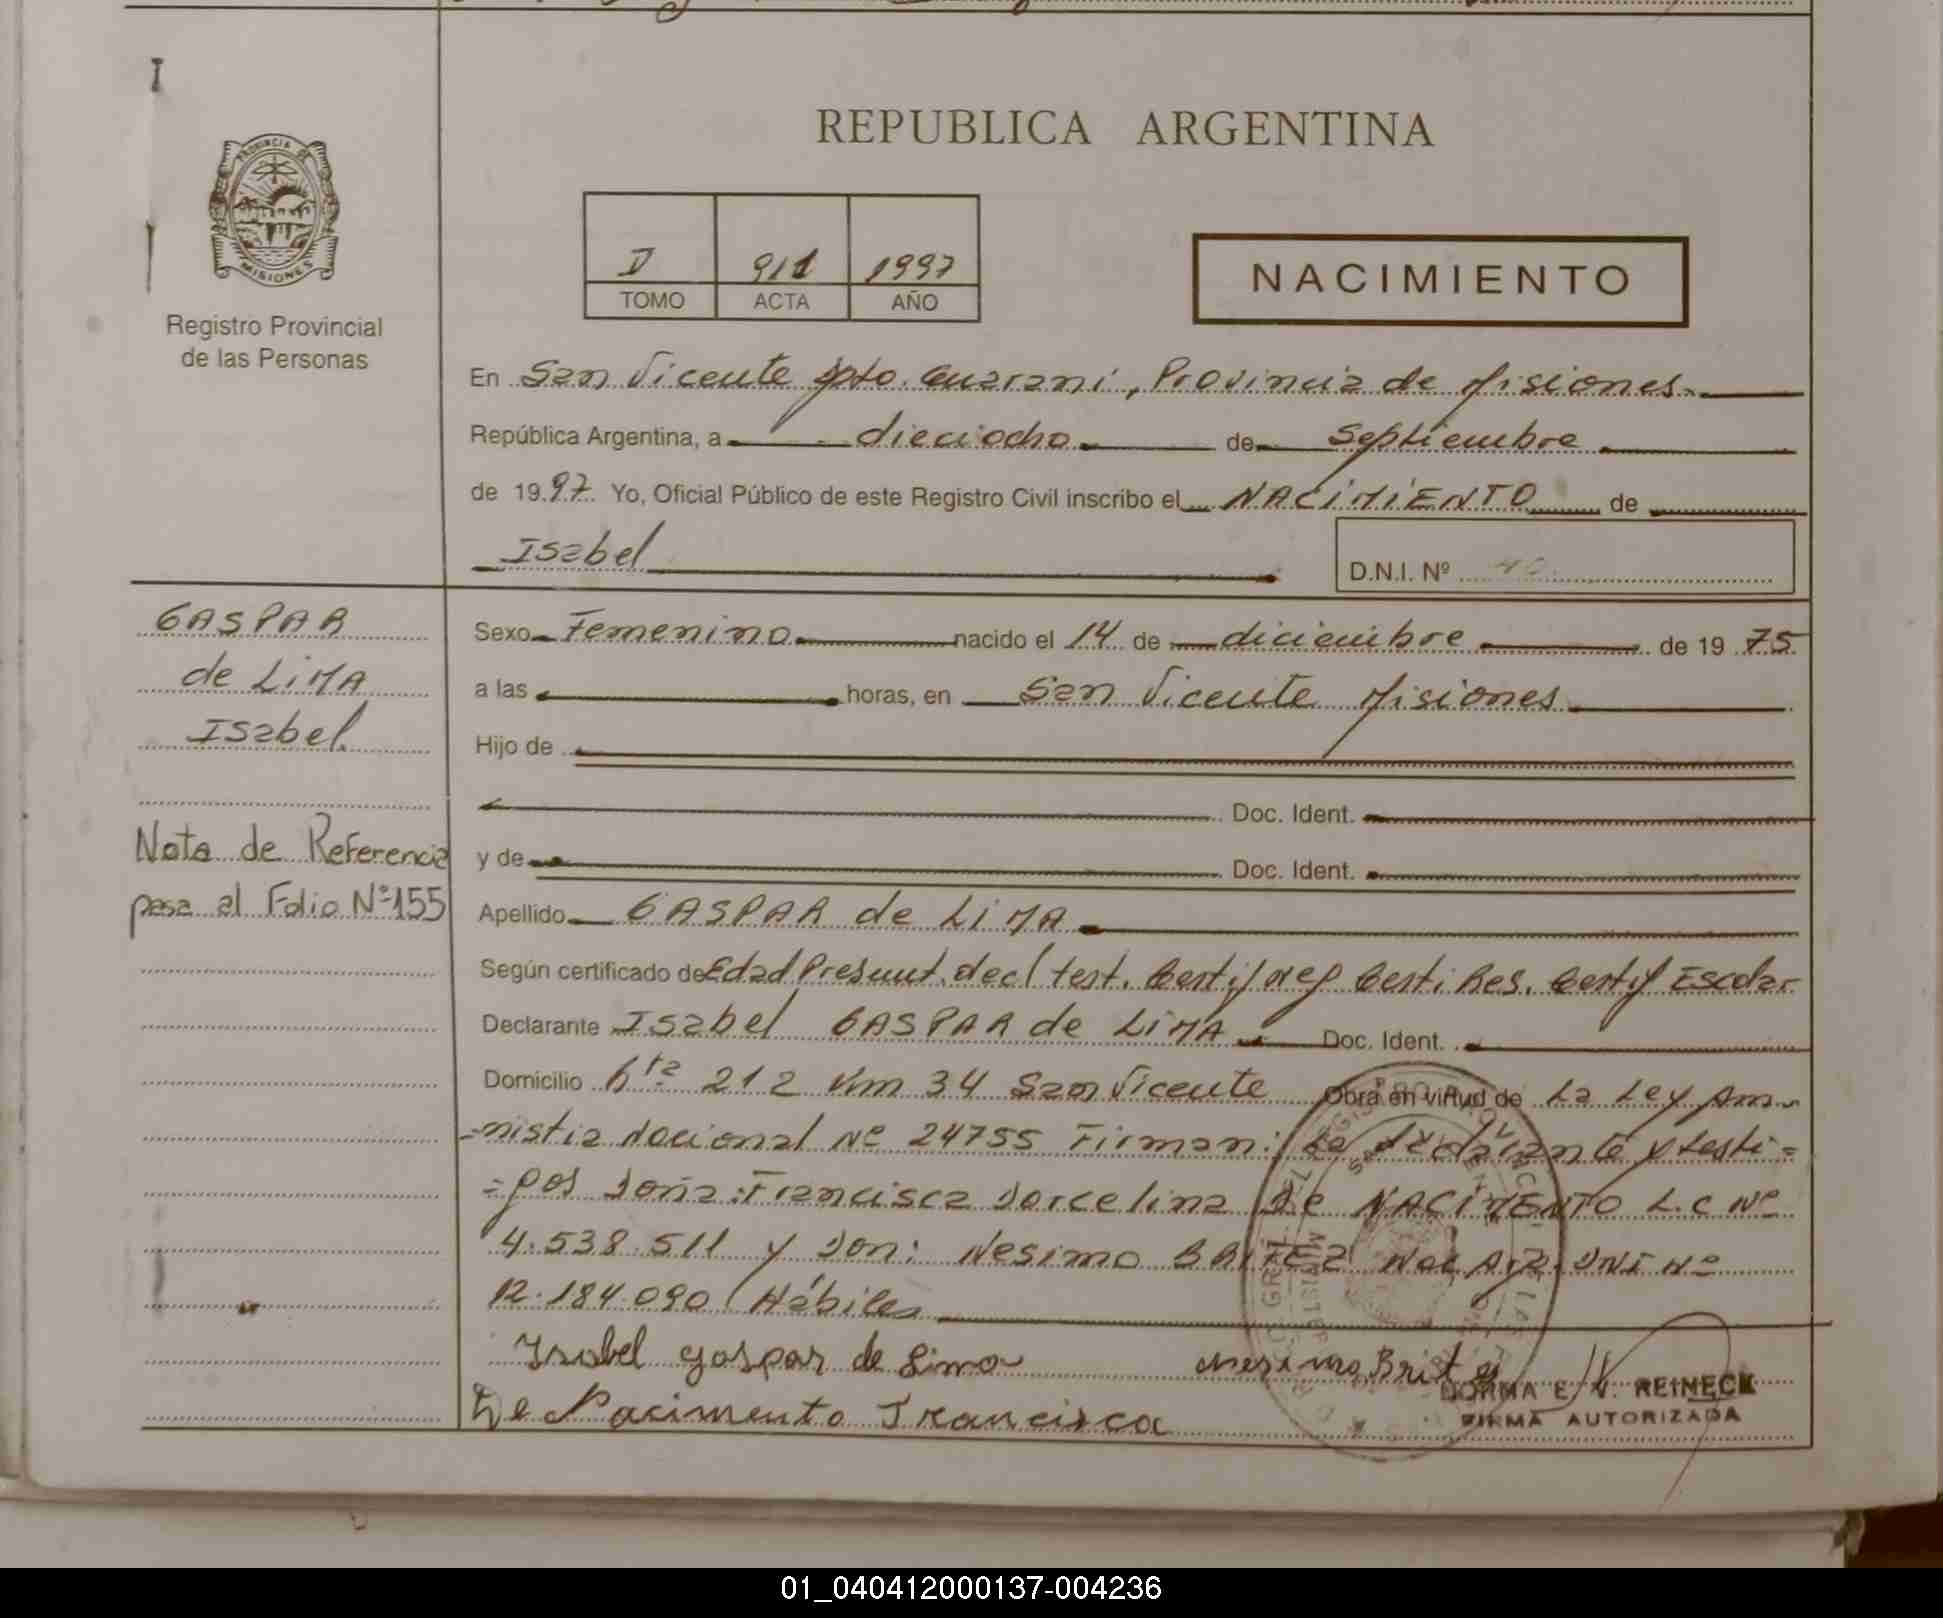 REPUBLICA ARGENTINA
PROVINCIA DE
MISIONES
Registro Provincial
de las Personas
I 911 1997
TOMO ACTA AÑO
NACIMIENTO
En San Vicente Dpto. Guarani, Provincia de Misiones
República Argentina, a dieciocho de Septiembre
de 1997 Yo, Oficial Público de este Registro Civil inscribo el NACIMIENTO de
Isabel
D.N.I. Nº
GASPAR
de LIMA
Isabel
Nota de Referencia
pasa al Folio Nº 155
Sexo Femenino nacido el 14 de diciembre de 1975
a las horas, en San Vicente Misiones
Hijo de
Doc. Ident.
y de Doc. Ident.
Apellido GASPAR de LIMA
Según certificado de Edad Presunt. decl test. Certif Neg Certi Res. Certif Escolar
Declarante Isabel GASPAR de LIMA Doc. Ident.
Domicilio 212 Km 34 San Vicente Obra en virtud de La Ley Am-
-nistia Nacional Nº 24755 Firman: La declarante y testi=
=gos doña: Francisca Dorcelina De NACIMENTO L.C Nº
4.538.511 y Don: Nesimo DNI Nº
12.184.090 Hábiles
Isabel gaspar de Lima
De Nacimento Francisca
NORMA E. V. REINECK
FIRMA AUTORIZADA
01_040412000137-004236